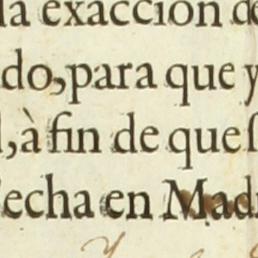 la exaccion de
do, para que y
, à fin de que
echa en Mad